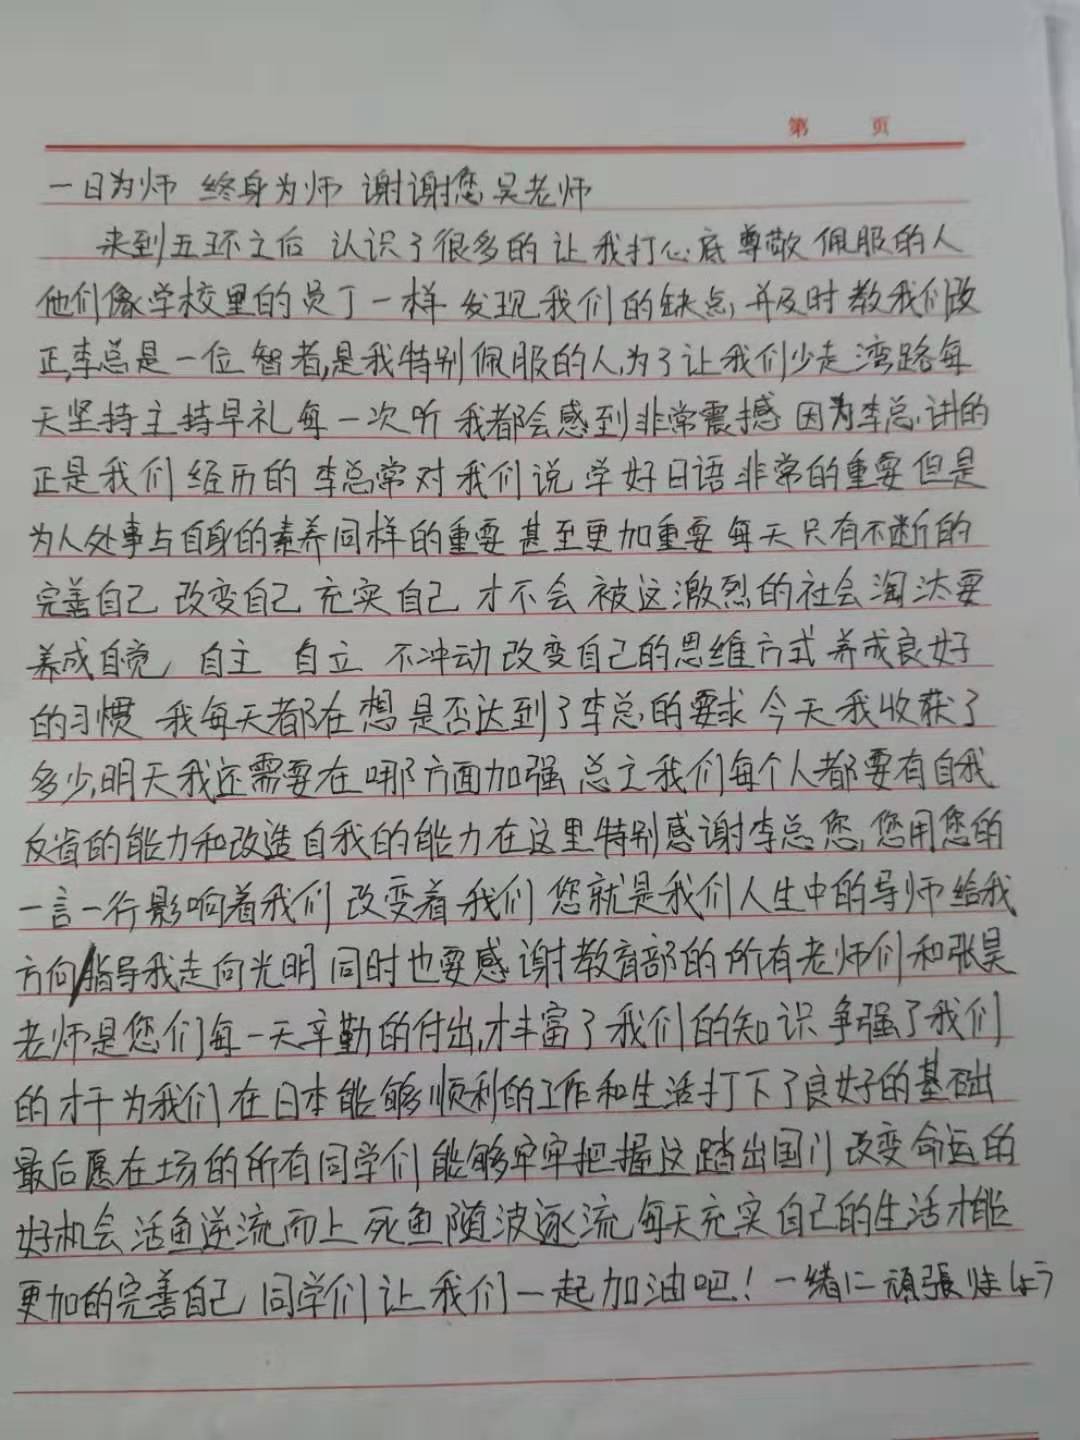 第 页
一日为师 终身为师 谢谢您吴老师
来到五环之后 认识了很多的 让我打心底尊敬 佩服的人
他们像学校里的园丁一样 发现我们的缺点,并及时教我们改
正,李总是一位智者,是我特别佩服的人,为了让我们少走湾路每
天坚持主持早礼每一次听 我都会感到非常震撼 因为李总讲的
正是我们经历的 李总常对我们说 学好日语非常的重要但是
为人处事与自身的素养同样的重要 甚至更加重要 每天只有不断的
完善自己 改变自己 充实自己 才不会 被这激烈的社会淘汰要
养成自觉, 自主 自立 不冲动 改变自己的思维方式 养成良好
的习惯 我每天都在想是否达到了李总的要求 今天我收获了
多少,明天我还需要在哪方面加强 总之我们每个人都要有自我
反省的能力和改造自我的能力在这里特别感谢李总您,您用您的
一言一行影响着我们 改变着我们 您就是我们人生中的导师给我
方向指导我走向光明 同时也要感谢教育部的所有老师们和张昊
老师是您们每一天辛勤的付出,才丰富了我们的知识争强了我们
的才干为我们在日本能够顺利的工作和生活打下了良好的基础
最后愿在场的所有同学们能够牢牢把握这踏出国门改变命运的
好机会 活鱼逆流而上 死鱼随波逐流,每天充实自己的生活才能
更加的完善自己 同学们让我们一起加油吧!一緒に頑張りましょう